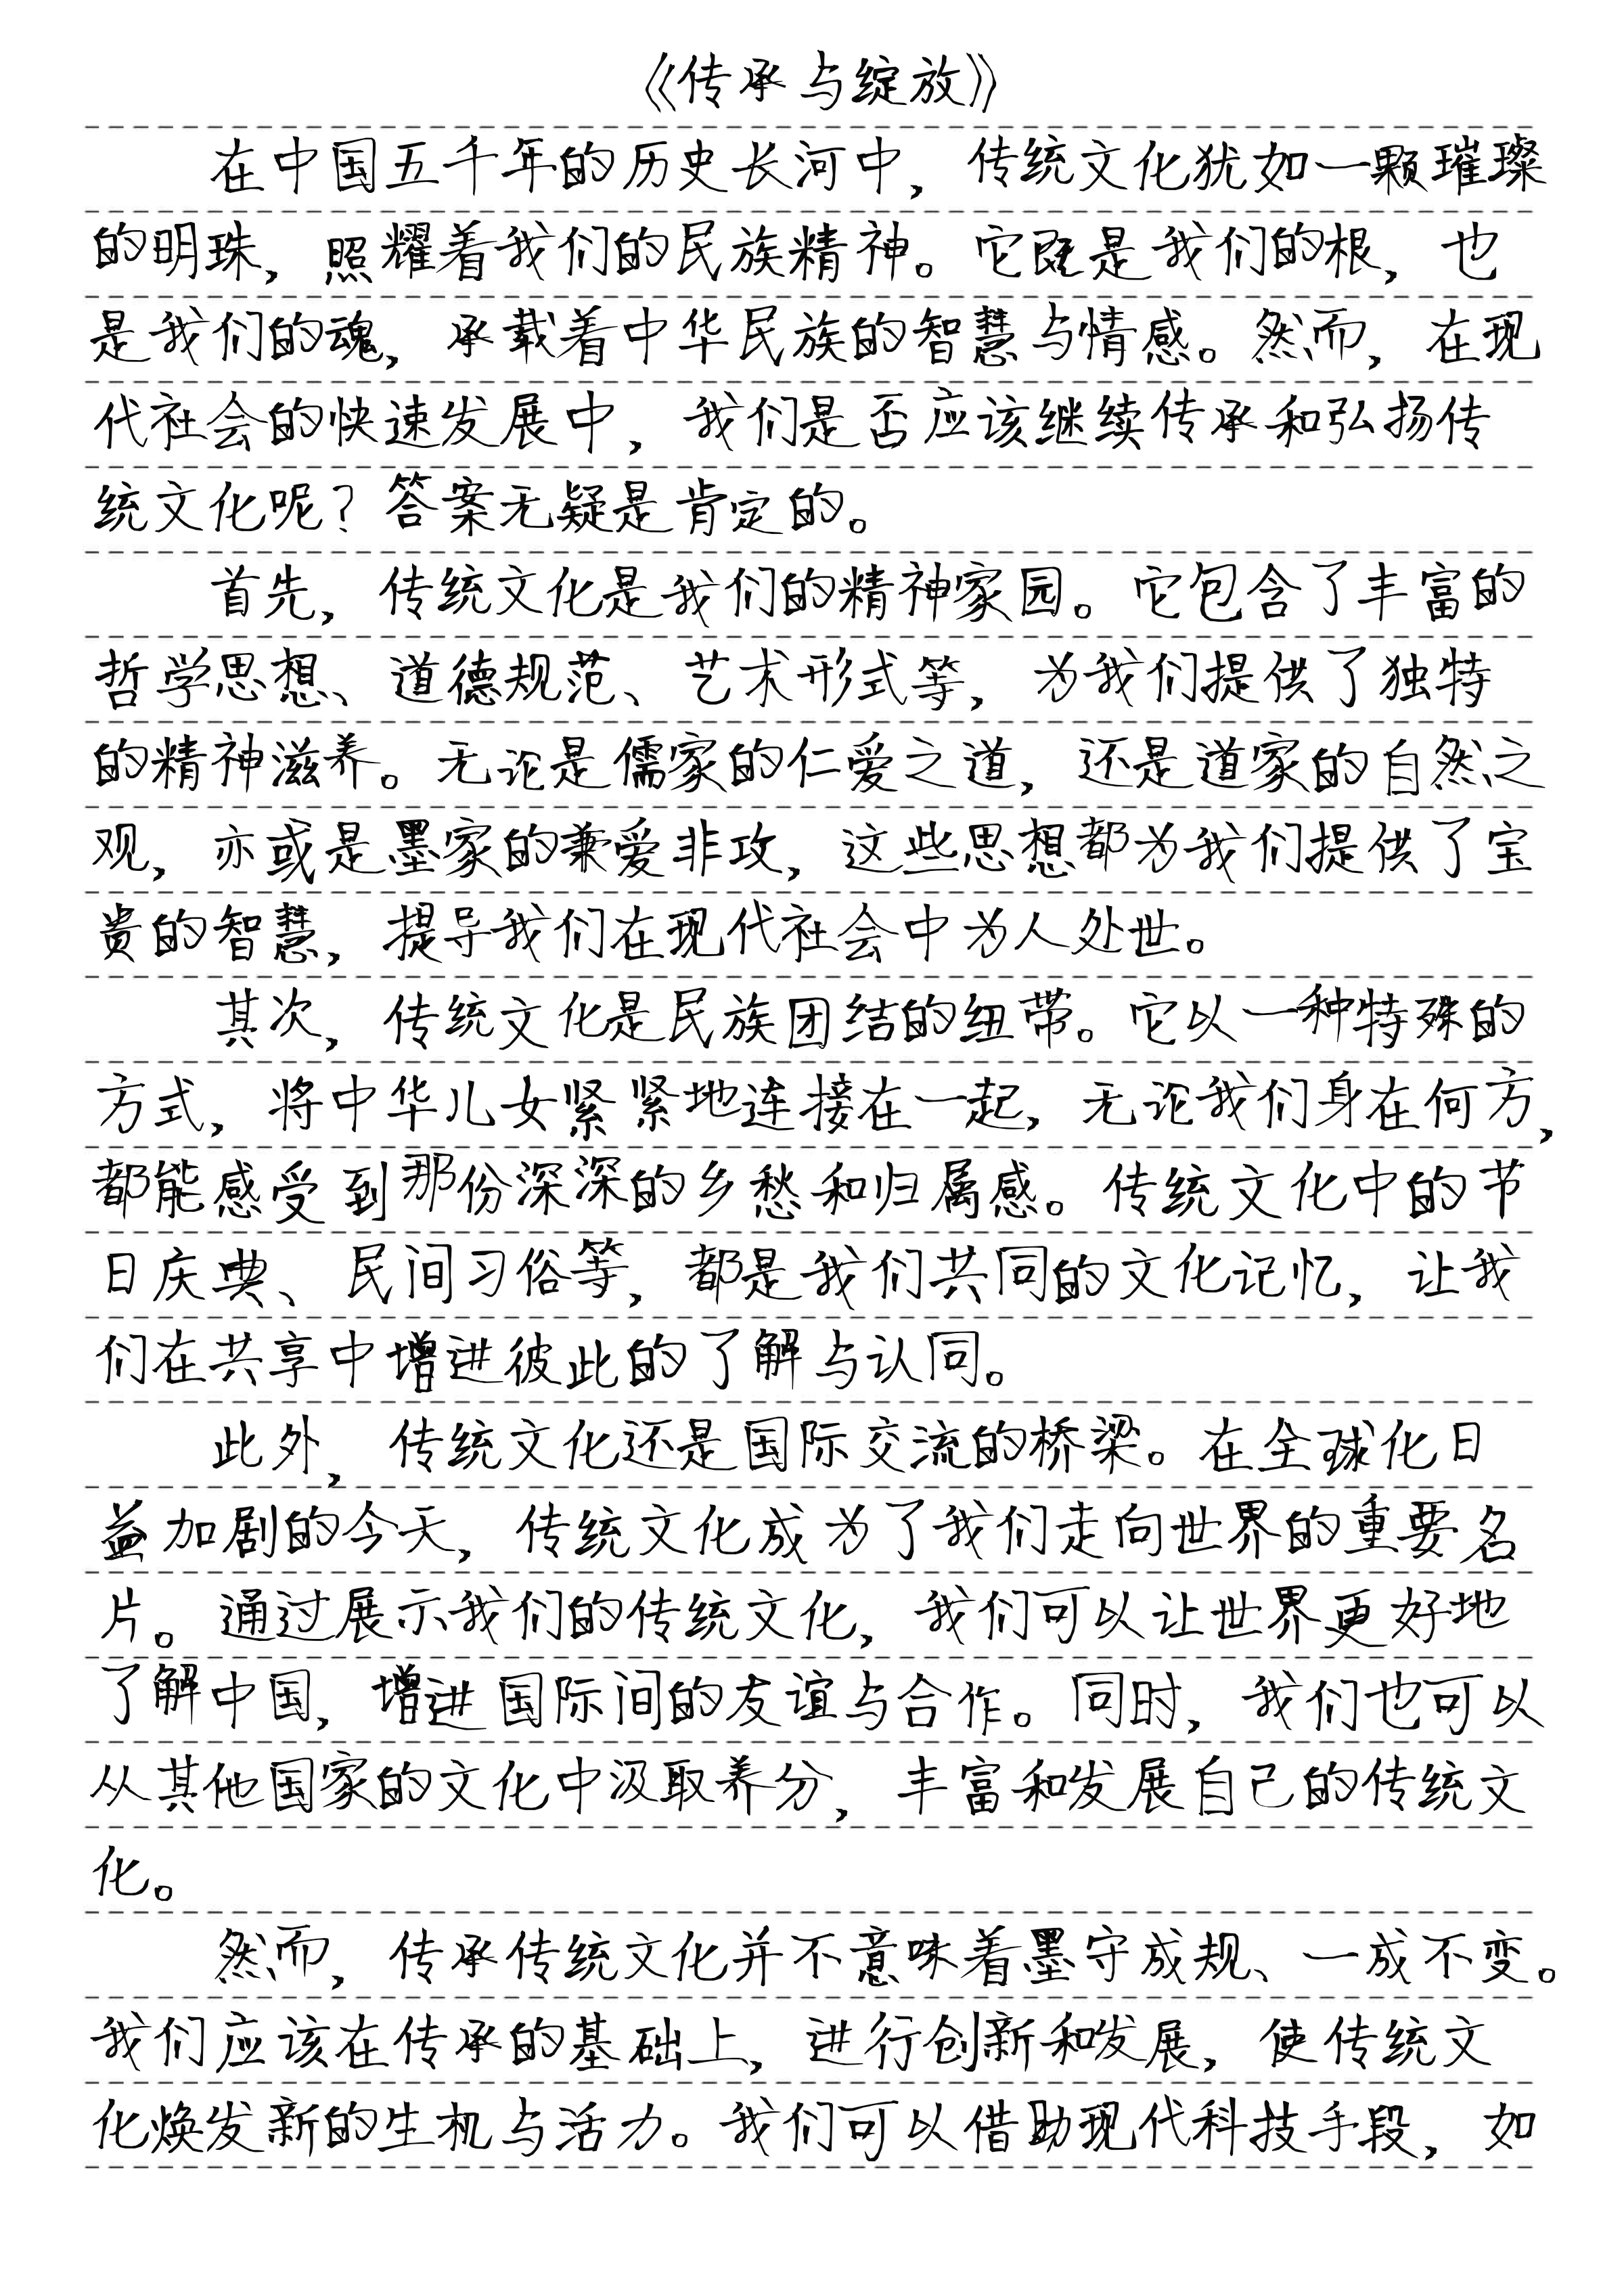 《传承与绽放》
在中国五千年的历史长河中，传统文化犹如一颗璀璨
的明珠，照耀着我们的民族精神。它既是我们的根，也
是我们的魂，承载着中华民族的智慧与情感。然而，在现
代社会的快速发展中，我们是否应该继续传承和弘扬传
统文化呢？答案无疑是肯定的。
首先，传统文化是我们的精神家园。它包含了丰富的
哲学思想、道德规范、艺术形式等，为我们提供了独特
的精神滋养。无论是儒家的仁爱之道，还是道家的自然之
观，亦或是墨家的兼爱非攻，这些思想都为我们提供了宝
贵的智慧，提导我们在现代社会中为人处世。
其次，传统文化是民族团结的纽带。它以一种特殊的
方式，将中华儿女紧紧地连接在一起，无论我们身在何方，
都能感受到那份深深的乡愁和归属感。传统文化中的节
日庆典、民间习俗等，都是我们共同的文化记忆，让我
们在共享中增进彼此的了解与认同。
此外，传统文化还是国际交流的桥梁。在全球化日
益加剧的今天，传统文化成为了我们走向世界的重要名
片。通过展示我们的传统文化，我们可以让世界更好地
了解中国，增进国际间的友谊与合作。同时，我们也可以
从其他国家的文化中汲取养分，丰富和发展自己的传统文
化。
然而，传承传统文化并不意味着墨守成规、一成不变。
我们应该在传承的基础上，进行创新和发展，使传统文
化焕发新的生机与活力。我们可以借助现代科技手段，如